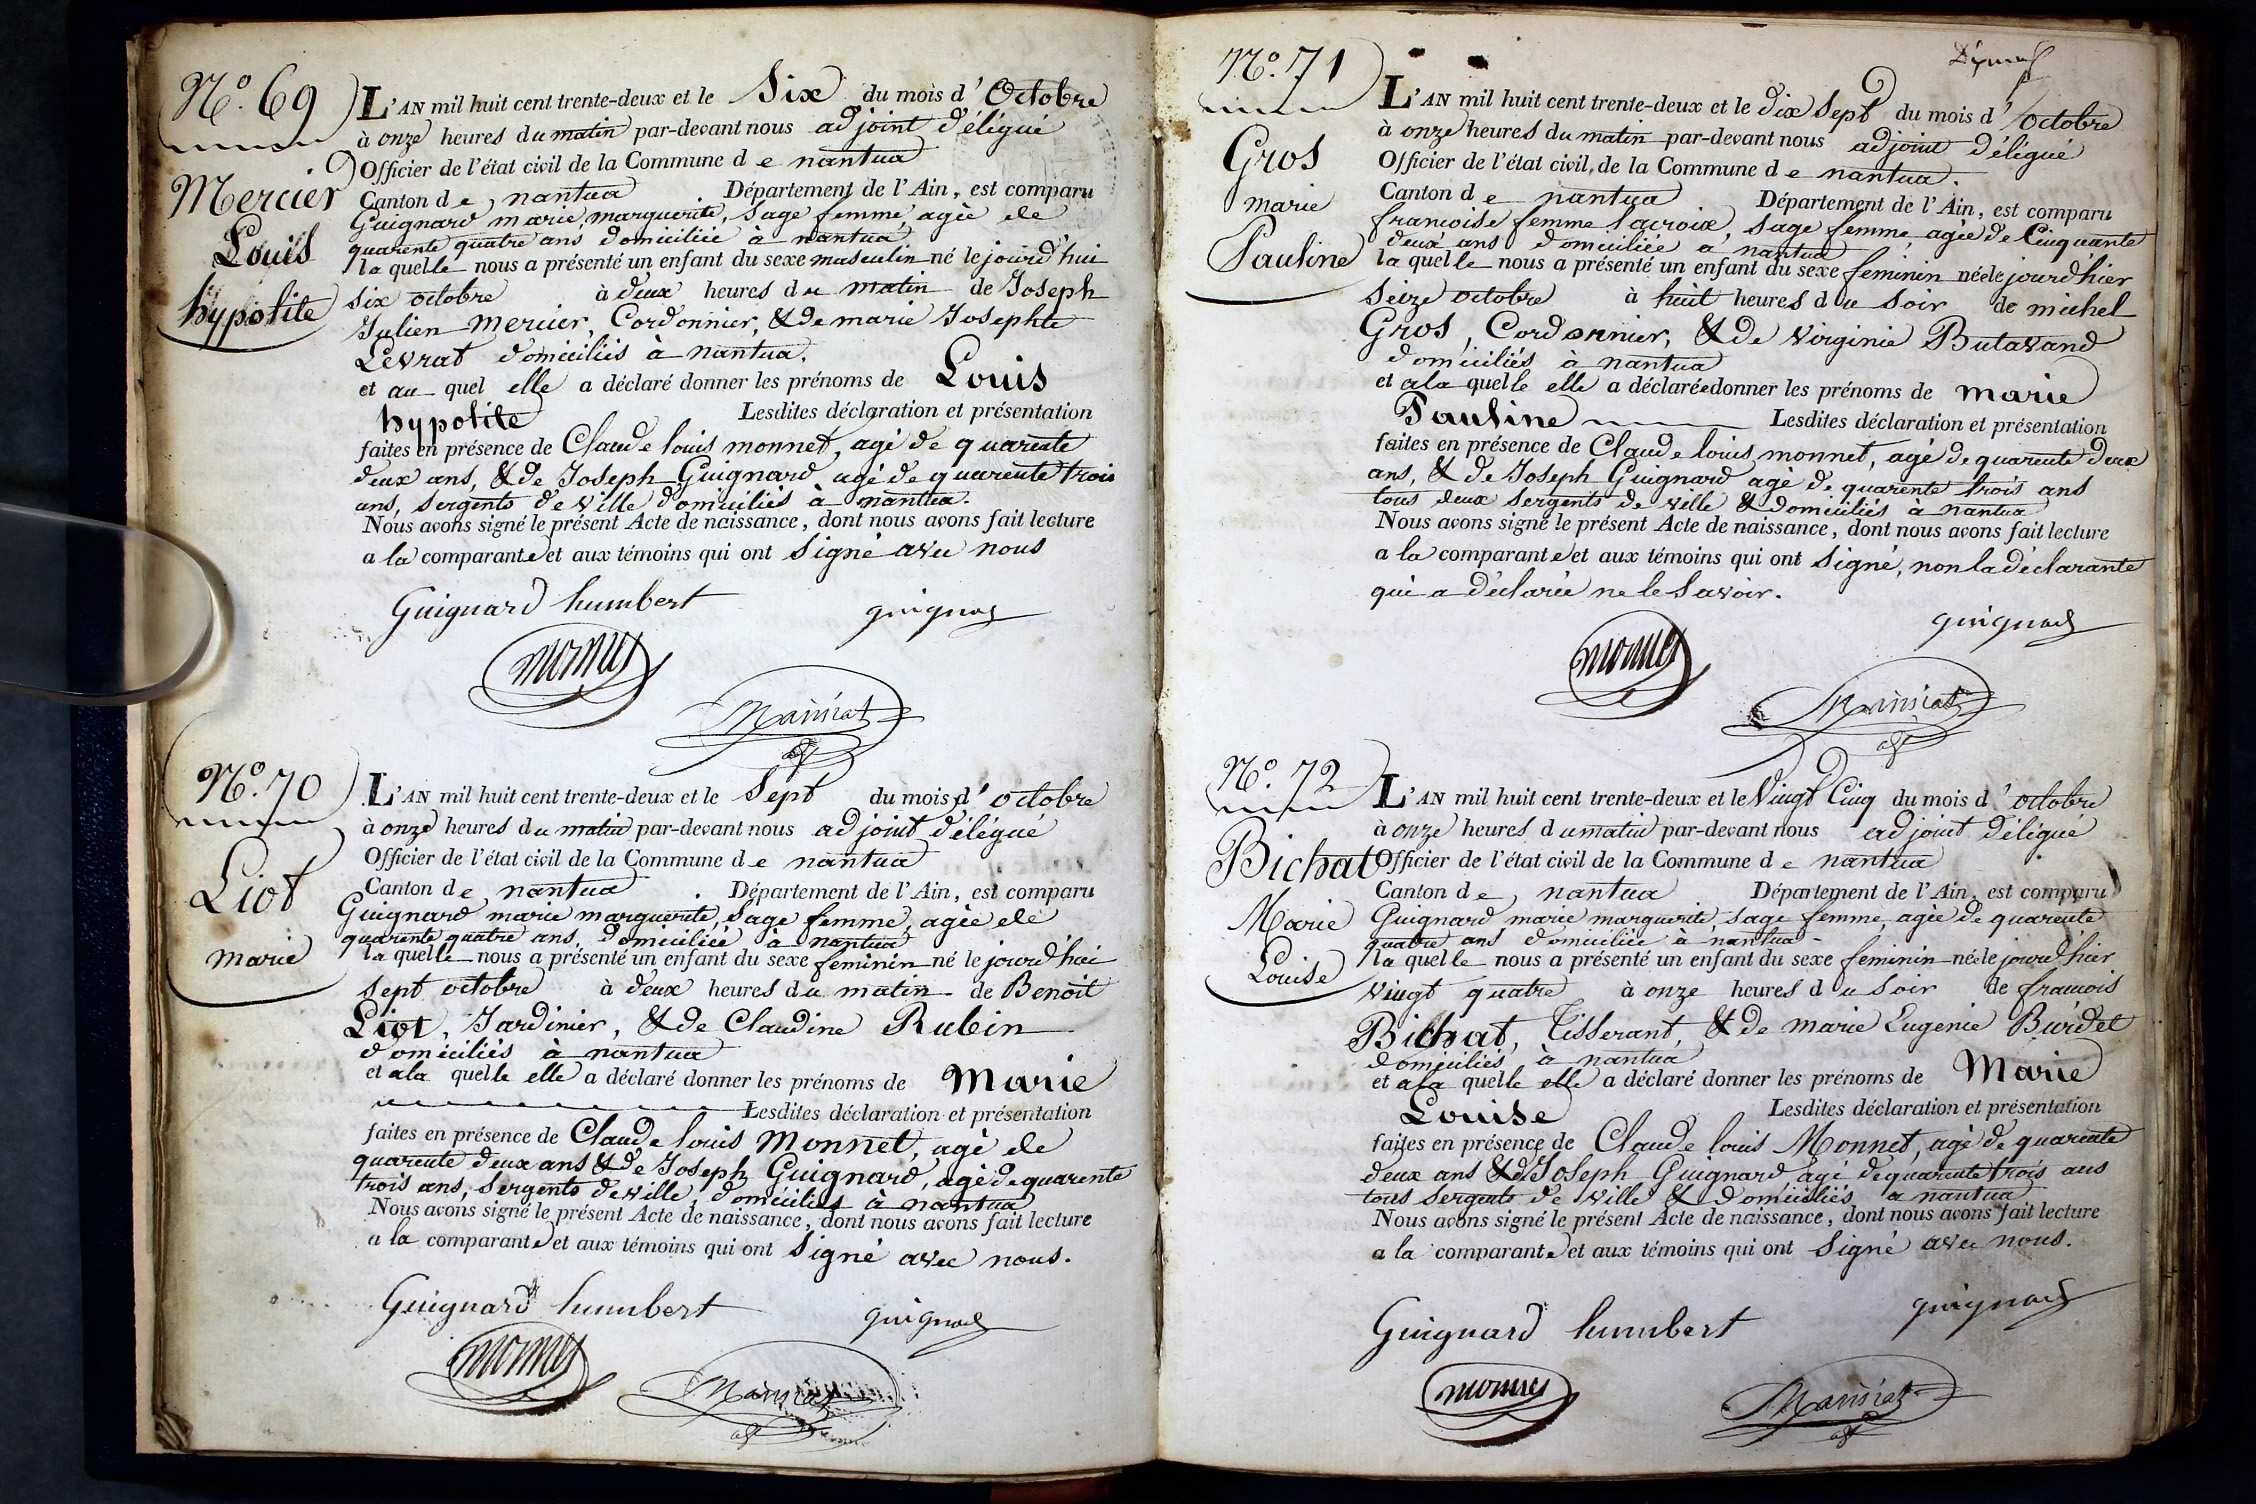 N.º 69
Mercier
Louis
hypolite
L'AN mil huit cent trente-deux et le Six du mois d'Octobre
à onze heures du matin par-devant nous adjoint d'élégué
Officier de l'état civil de la Commune de nantua
Canton de nantua Département de l'Ain, est comparu
Guignard marie marguerite, sage femme, agée de
quarente quatre ans domiciliée à nantua
la quelle nous a présenté un enfant du sexe masculin né le jourd'hui
six octobre à deux heures du matin de Joseph
Julien mercier, Cordonnier, & de marie Josephte
Levrat domiciliés à nantua.
et au quel elle a déclaré donner les prénoms de Louis
hypolite Lesdites déclaration et présentation
faites en présence de Claude louis monnet, agé de quarente
deux ans, & de Joseph Guignard agé de quarente trois
ans, sergents de ville domiciliés à nantua.
Nous avons signé le présent Acte de naissance, dont nous avons fait lecture
a la comparante et aux témoins qui ont signé avec nous
Guignard humbert guignard
monnet
N.º 70
Liot
marie
L'AN mil huit cent trente-deux et le Sept du mois d'octobre
à onze heures du matin par-devant nous adjoint d'élégué
Officier de l'état civil de la Commune de nantua
Canton de nantua. Département de l'Ain, est comparu
Guignard marie marguerite, sage femme, agée de
quarente quatre ans, domiciliée à nantua
la quelle nous a présenté un enfant du sexe feminin né le jourd'hui
sept octobre à deux heures du matin de Benoit
Liot, Jardinier, & de Claudine Rubin
domiciliés à nantua
et a la quelle elle a déclaré donner les prénoms de Marie
Lesdites déclaration et présentation
faites en présence de Claude louis Monnet, agé de
quarente deux ans & de Joseph Guignard, agé de quarente
trois ans, sergents de ville, domiciliés à nantua
Nous avons signé le présent Acte de naissance, dont nous avons fait lecture
a la comparante et aux témoins qui ont signé avec nous.
Guignard humbert guignard
monnet
N.º 71
Gros
marie
Pauline
L'AN mil huit cent trente-deux et le dix sept du mois d'octobre
à onze heures du matin par-devant nous adjoint d'élégué
Officier de l'état civil de la Commune de nantua.
Canton de nantua Département de l'Ain, est comparu
francoise femme lacroix, sage femme agée de Cinquante
deux ans domiciliée a nantua
la quelle nous a présenté un enfant du sexe feminin née le jourd'hier
seize octobre à huit heures du soir de michel
Gros, Cordonnier, & de Virginie Butavand
domiciliés à nantua
et a la quelle elle a déclarée donner les prénoms de marie
Pauline Lesdites déclaration et présentation
faites en présence de Claude louis monnet, agé de quarente deux
ans, & de Joseph Guignard agé de quarente trois ans
tous deux sergents de ville & domiciliés à nantua
Nous avons signé le présent Acte de naissance, dont nous avons fait lecture
a la comparante et aux témoins qui ont signé, non la déclarante
qui a déclarée ne le savoir.
guignard
monnet
N.º 72
Bichat
Marie
Louise
L'AN mil huit cent trente-deux et le Vingt Cinq du mois d'octobre
à onze heures du matin par-devant nous adjoint d'élégué
Officier de l'état civil de la Commune de nantua
Canton de nantua Département de l'Ain, est comparu
Guignard marie marguerite, sage femme, agée de quarente
quatre ans domiciliée à nantua
la quelle nous a présenté un enfant du sexe feminin née le jourd'hier
vingt quatre à onze heures du soir de francois
Bichat, Tisserant, & de marie Eugenie Burdet
domiciliés à nantua
et a la quelle elle a déclaré donner les prénoms de Marie
Louise Lesdites déclaration et présentation
faites en présence de Claude louis Monnet, agé de quarente
deux ans & de Joseph Guignard, agé de quarente trois ans
tous sergents de ville & domiciliés a nantua
Nous avons signé le présent Acte de naissance, dont nous avons fait lecture
a la comparante et aux témoins qui ont signé avec nous.
Guignard humbert guignard
monnet